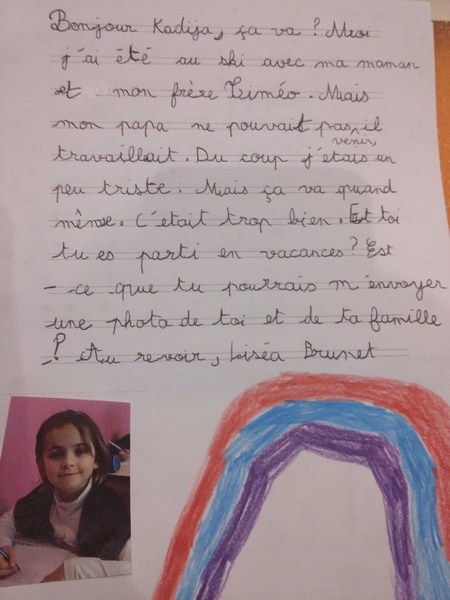 Bonjour Kadija, ça va ? Moi
j'ai été au ski avec ma maman
et mon frère Timéo. Mais
mon papa ne pouvait pas venir, il
travaillait. Du coup j'étais un
peu triste. Mais ça va quand
même. C'était trop bien. Et toi
tu es parti en vacances ? Est
- ce que tu pourrais m'envoyer
une photo de toi et de ta famille
? Au revoir, Liséa Brunet